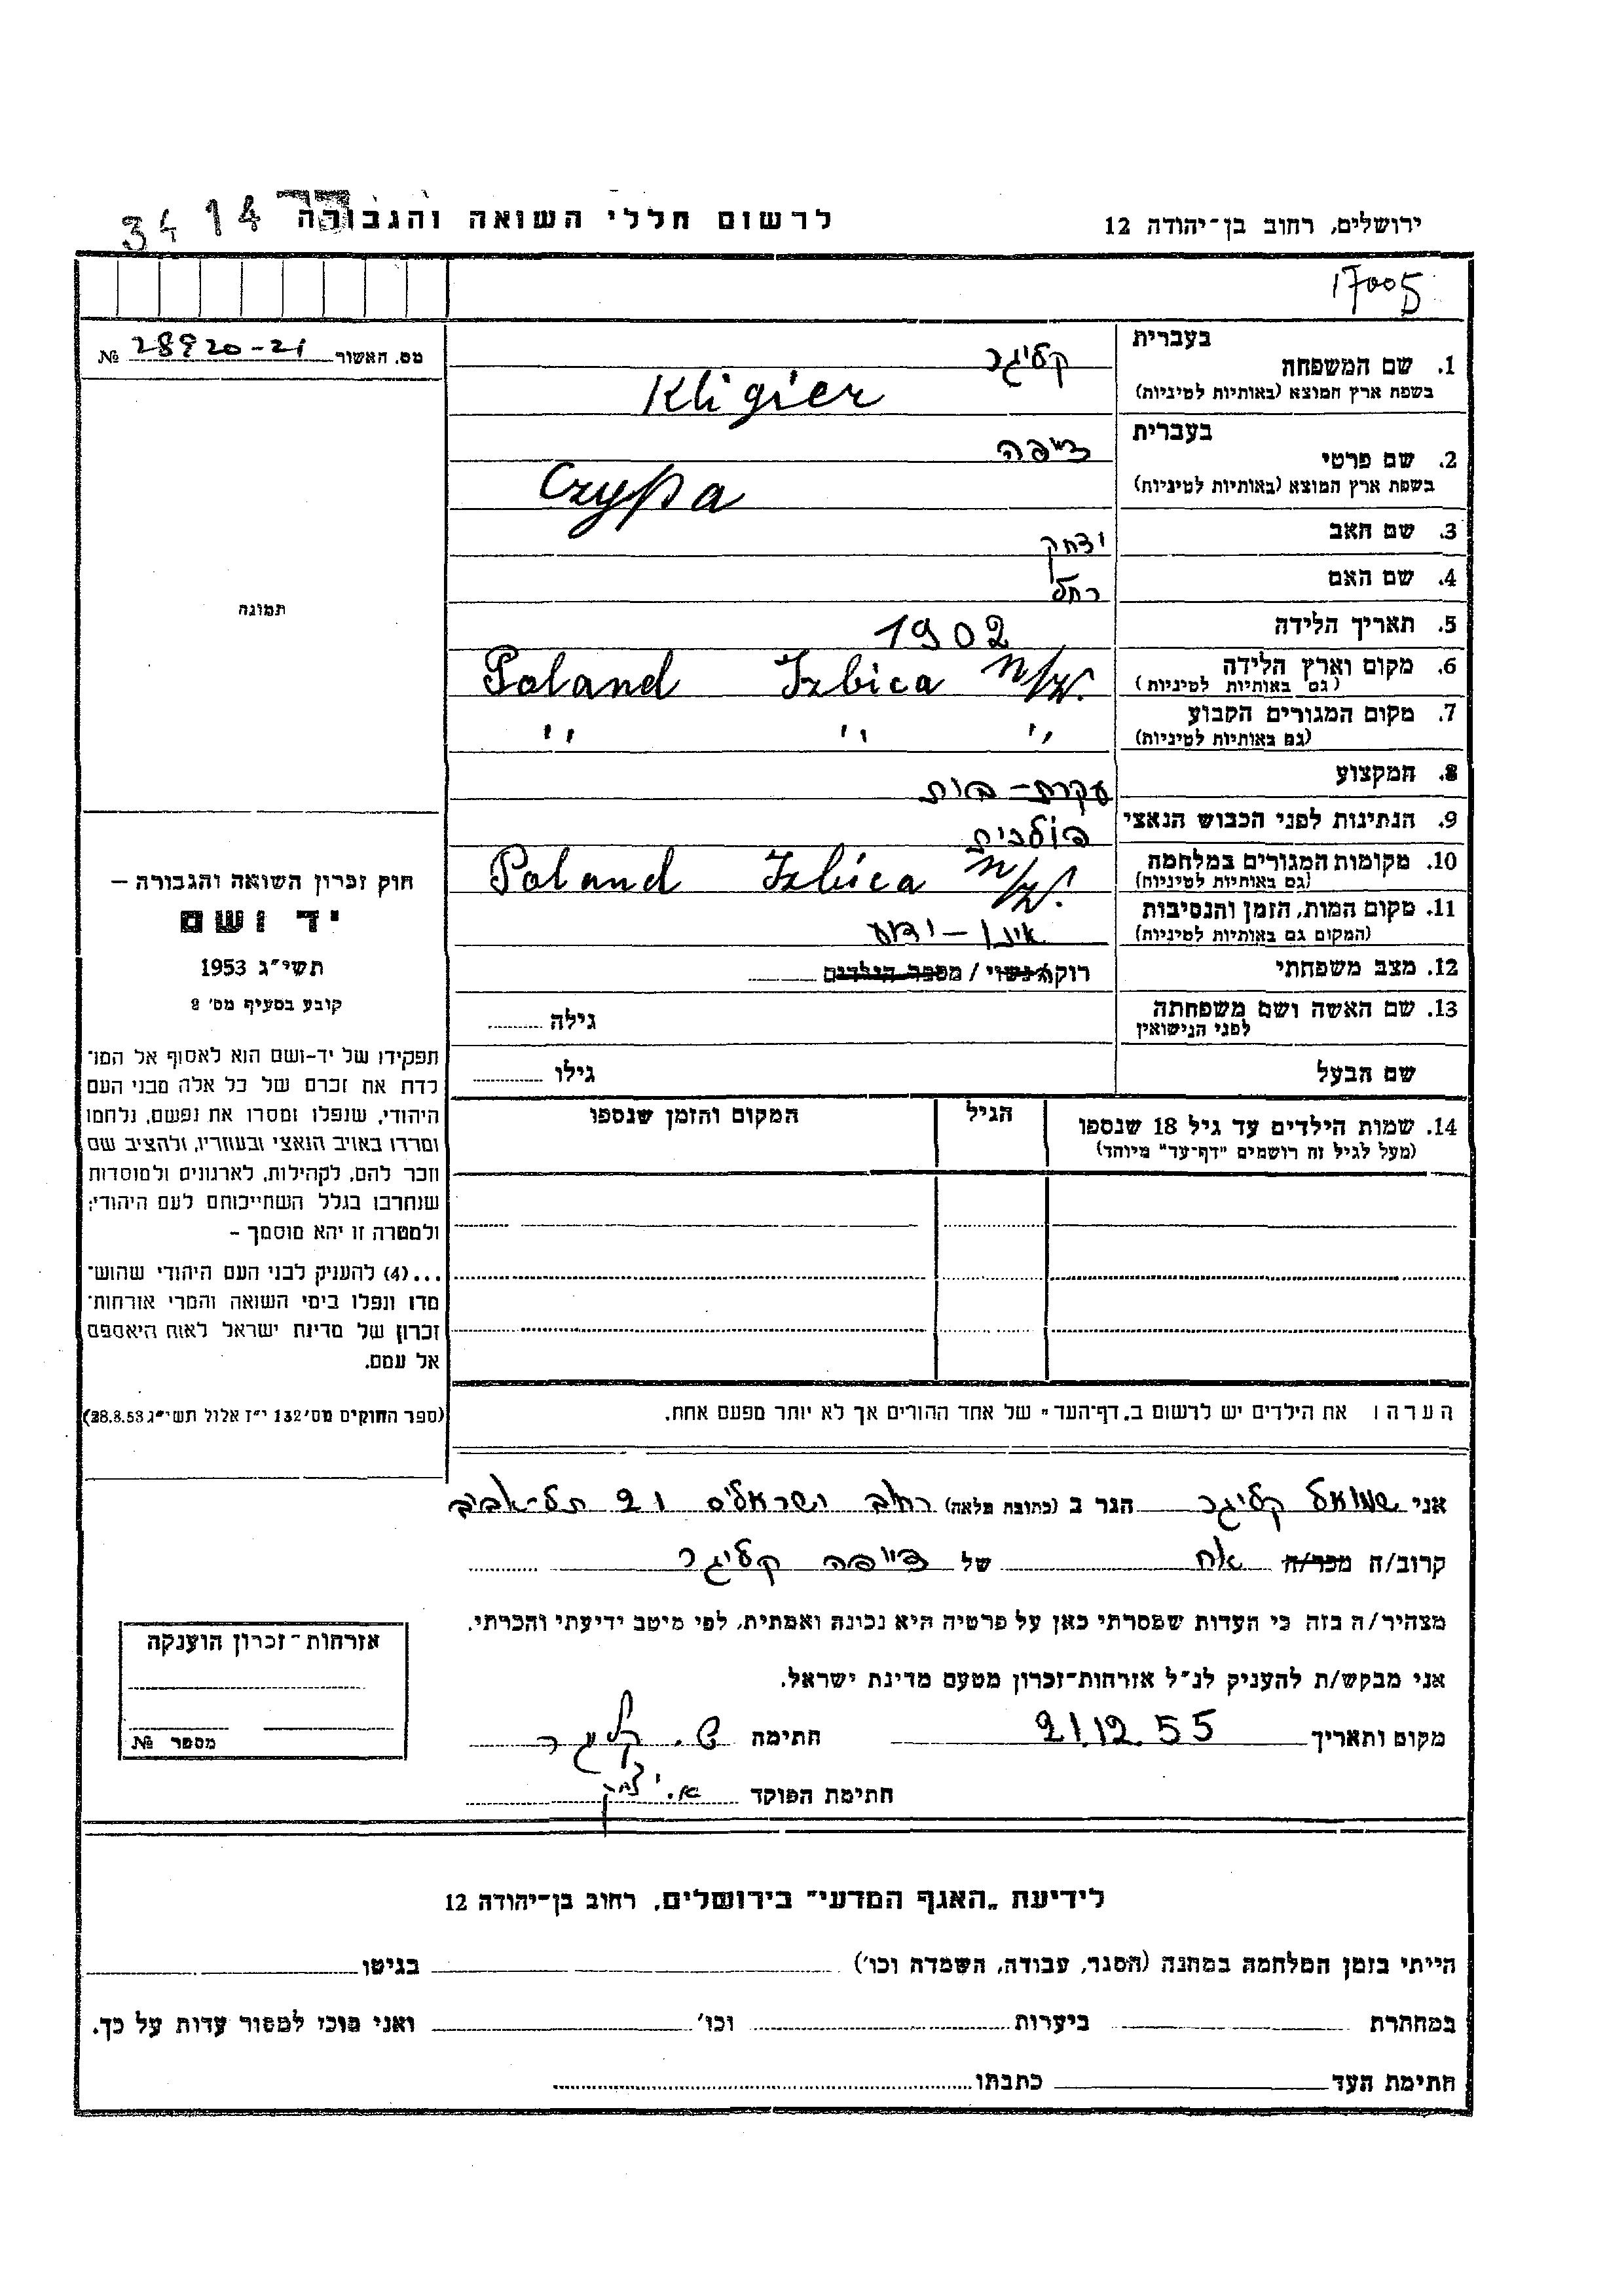 3414
לרשום חללי השואה והגבורה
ירושלים, רחוב בן-יהודה 12
17005
מס. האשור 28920-21 №
1. שם המשפחה
בעברית קליגר
בשפת ארץ המוצא (באותיות לטיניות) Kligier
2. שם פרטי
בעברית ציפה
בשפת ארץ המוצא (באותיות לטיניות) Czypa
3. שם האב יצחק
4. שם האם רחל
5. תאריך הלידה 1902
6. מקום וארץ הלידה (גם באותיות לטיניות) Poland Izbica n/W.
7. מקום המגורים הקבוע (גם באותיות לטיניות) " " "
8. המקצוע עקרת-בית
9. הנתינות לפני הכבוש הנאצי פולנית
10. מקומות המגורים במלחמה (גם באותיות לטיניות) Poland Izbica n/W.
11. מקום המות, הזמן והנסיבות (המקום גם באותיות לטיניות) אינו - ידוע
12. מצב משפחתי רווק/נשוי / מספר הילדים
13. שם האשה ושם משפחתה לפני הנישואין גילה
שם הבעל גילו
14. שמות הילדים עד גיל 18 שנספו
(מעל לגיל זה רושמים "דף-עד" מיוחד)
הגיל
המקום והזמן שנספו
הערה: את הילדים יש לרשום ב„דף-העד" של אחד ההורים אך לא יותר מפעם אחת.
תמונה
חוק זכרון השואה והגבורה –
יד ושם
תשי"ג 1953
קובע בסעיף מס' 2
תפקידו של יד-ושם הוא לאסוף אל המו־
לדת את זכרם של כל אלה מבני העם
היהודי, שנפלו ומסרו את נפשם, נלחמו
ומרדו באויב הנאצי ובעוזריו, ולהציב שם
וזכר להם, לקהילות, לארגונים ולמוסדות
שנחרבו בגלל השתייכותם לעם היהודי;
ולמטרה זו יהא מוסמך –
...(4) להעניק לבני העם היהודי שהוש־
מדו ונפלו בימי השואה והמרי אזרחות־
זכרון של מדינת ישראל לאות היאספם
אל עמם.
(ספר החוקים מס' 132 י"ז אלול תשי"ג 28.8.53)
אני שמואל קליגר הגר ב (כתובת מלאה) רחוב ישראליס 21 תל-אביב
קרוב/ה מכר/ה אח של ציפה קליגר
מצהיר/ה בזה כי העדות שמסרתי כאן על פרטיה היא נכונה ואמתית, לפי מיטב ידיעתי והכרתי.
אני מבקש/ת להעניק לנ"ל אזרחות-זכרון מטעם מדינת ישראל.
מקום ותאריך 21.12.55 חתימה ש. קליגר
חתימת הפוקד א. יצחק
אזרחות-זכרון הוענקה
מספר №
לידיעת „האגף המדעי" בירושלים, רחוב בן-יהודה 12
הייתי בזמן המלחמה במחנה (הסגר, עבודה, השמדה וכו') בגיטו
במחתרת ביערות וכו' ואני מוכן למסור עדות על כך.
חתימת העד כתבתו